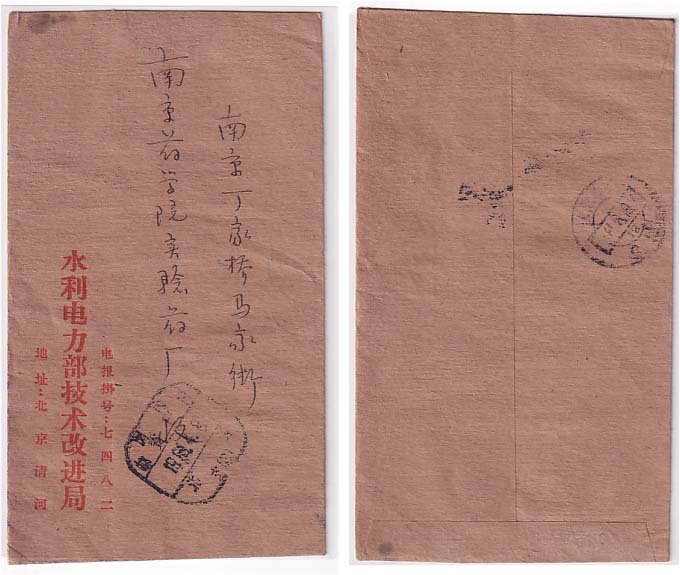 南京丁家桥马家街
南京药学院实验药厂
电报掛号：七四八二
水利电力部技术改进局
地址：北京清河